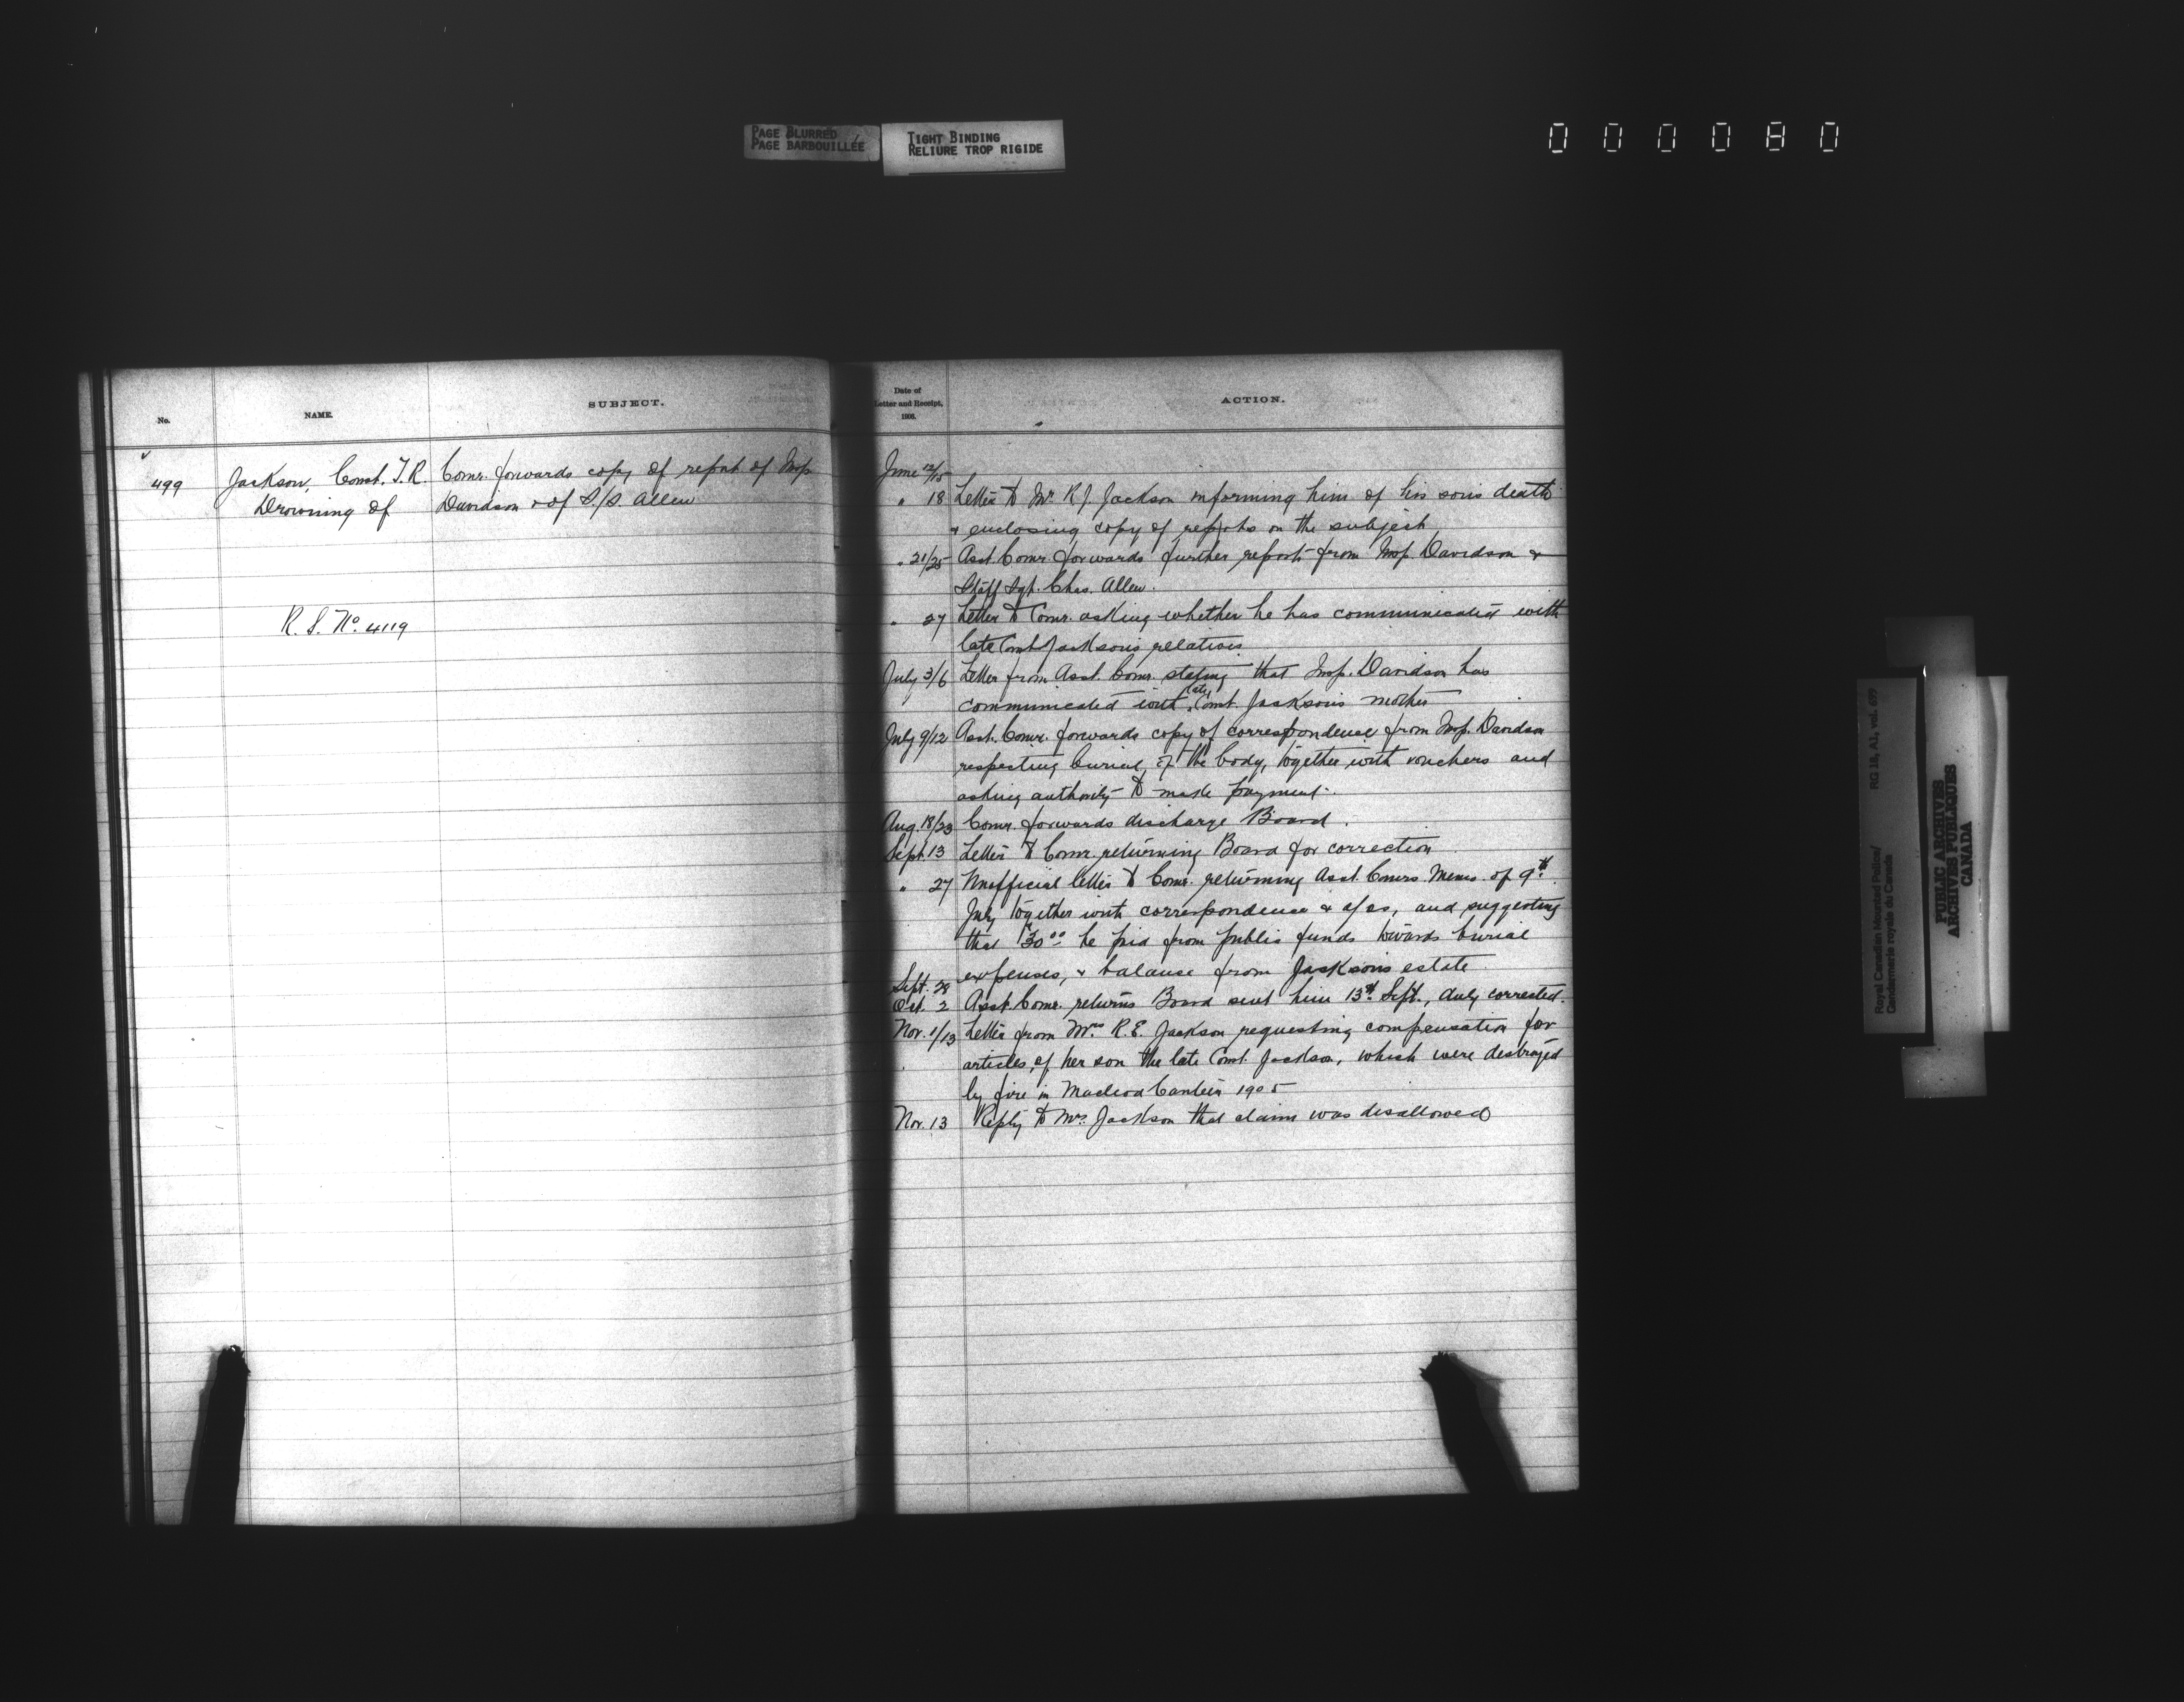 PAGE BLURRED
PAGE BARBOUILLÉE
TIGHT BINDING
RELIURE TROP RIGIDE
000080
No.
NAME.
SUBJECT.
499
Jackson, Const. T.R.
Drowning of
R.S. No. 4119
Comr. forwards copy of report of Insp
Davidson & of S/S. Allen
Date of
Letter and Receipt,
1906.
ACTION.
June 12/15
" 18 Letter to Mr. R.J. Jackson informing him of his son's death
& enclosing copy of reports on the subject
" 21/25 Asst. Comr. forwards further report from Insp. Davidson &
Staff Sgt. Chas. Allen.
" 27 Letter to Comr. asking whether he has communicated with
late Const Jackson's relations
July 3/6 Letter from Asst. Comr. stating that Insp. Davidson has
communicated with late Const. Jackson's mother
July 9/12 Asst. Comr. forwards copy of correspondence from Insp. Davidson
respecting burial of the body, together with vouchers and
asking authority to make payment.
Aug. 18/23 Comr. forwards discharge Board.
Sept. 13 Letter to Comr. returning Board for correction
" 27 Unofficial letter to Comr. returning Asst. Comrs. Memo. of 9th
July together with correspondence & a/cs, and suggesting
that $30.00 be paid from public funds towards burial
expenses, & balance from Jackson's estate
Sept. 28
Oct. 2 Asst. Comr. returns Board sent him 13th Sept., duly corrected.
Nov. 1/13 Letter from Mrs. R.E. Jackson requesting compensation for
articles of her son the late Const. Jackson, which were destroyed
by fire in Macleod Canteen 1905
Nov. 13 Reply to Mrs. Jackson that claim was disallowed
Royal Canadian Mounted Police/
Gendarmerie royale du Canada
RG 18, A1, vol. 697
PUBLIC ARCHIVES
ARCHIVES PUBLIQUES
CANADA